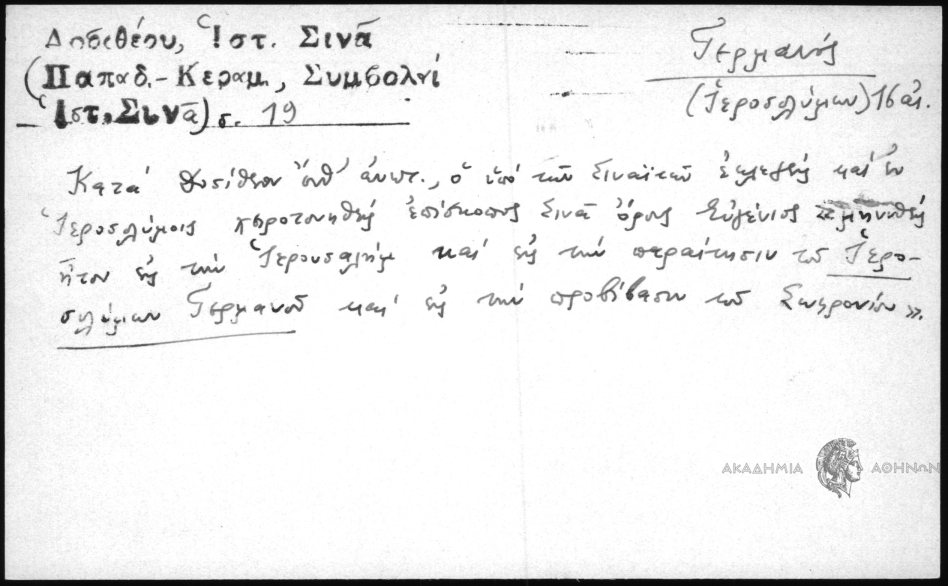 Δοσιθέου, Ἱστ. Σινᾶ
(Παπαδ.-Κεραμ., Συμβολαί
Ἱστ. Σινᾶ) σ. 19
Γερμανός
(Ἱεροσολύμων) 16 αἰ.
Κατά Δοσίθεον ἀνωτ., ὁ ὑπό τῶν Σιναϊτῶν ἐκλεγείς καί ἐν
Ἱεροσολύμοις χειροτονηθείς ἐπίσκοπος Σινᾶ ὄρους Εὐγένιος «μηνυθείς
ἦτον εἰς τήν Ἱερουσαλήμ καί εἰς τήν παραίτησιν τοῦ Ἱερο-
σολύμων Γερμανοῦ καί εἰς τήν προβίβασιν τοῦ Σωφρονίου».
ΑΚΑΔΗΜΙΑ ΑΘΗΝΩΝ